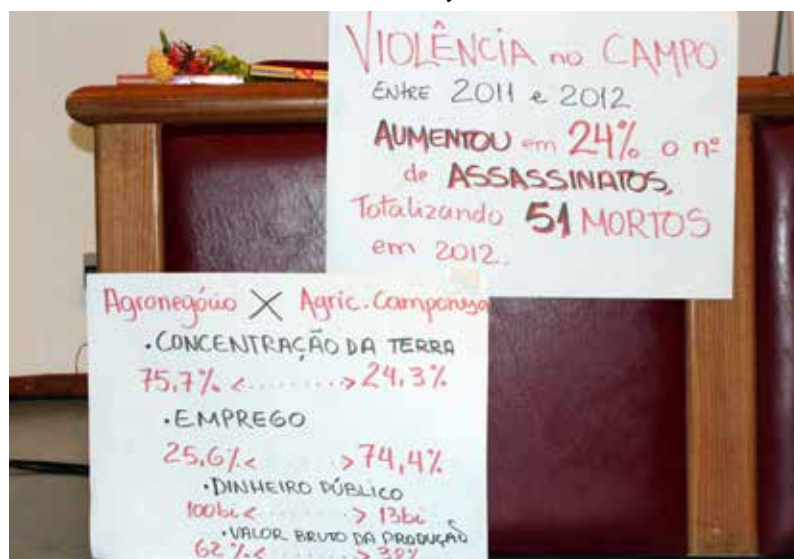 VIOLÊNCIA no CAMPO
ENTRE 2011 e 2012
AUMENTOU em 24% o nº
de ASSASSINATOS,
Totalizando 51 MORTOS
em 2012.
Agronegócio X Agric. Camponesa
• CONCENTRAÇÃO DA TERRA
75,7% <........> 24,3%
• EMPREGO
25,6% <........> 74,4%
• DINHEIRO PÚBLICO
100bi <........> 13bi
• VALOR BRUTO DA PRODUÇÃO
62% <........> 38%